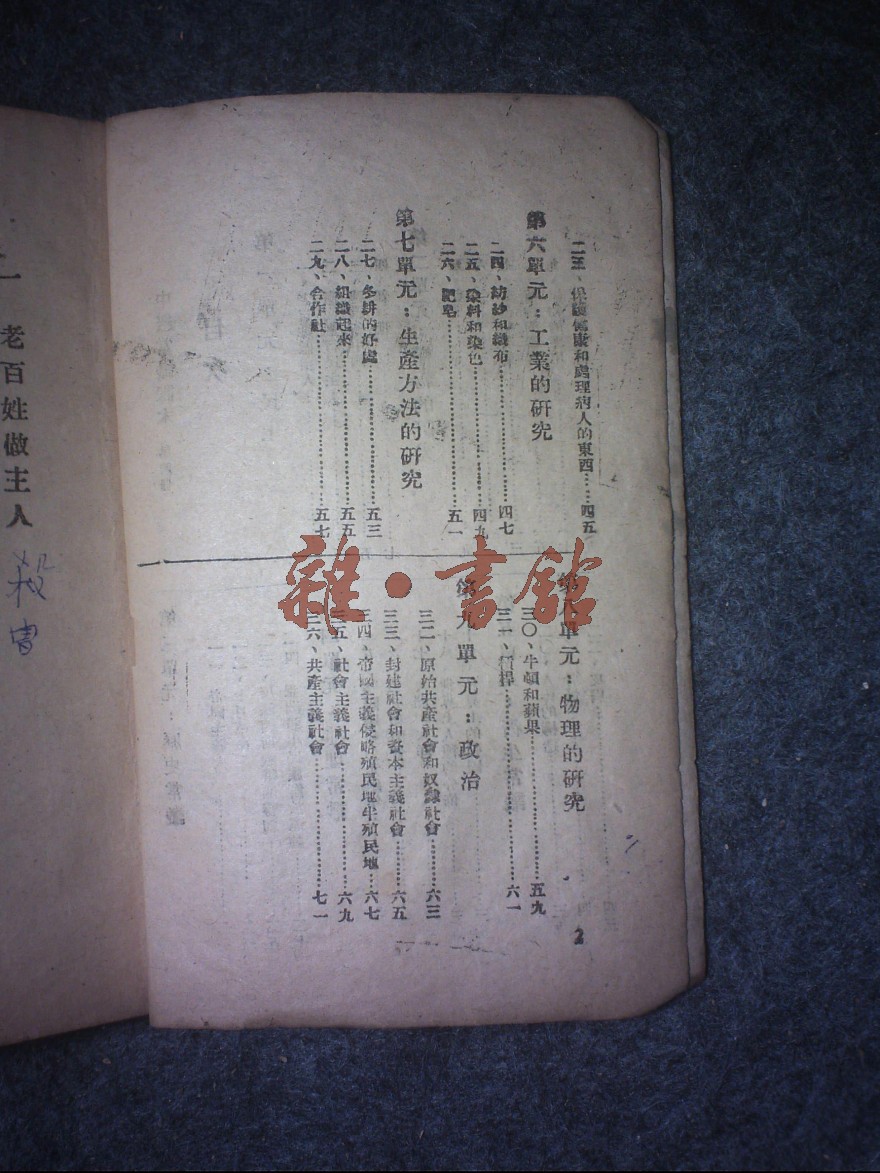 二三、保護健康和處理病人的東西……四五
第六單元：工業的研究
二四、紡紗和織布……四七
二五、染料和染色……四九
二六、肥皂……五一
第七單元：生產方法的研究
二七、冬耕的好處……五三
二八、組織起來……五五
二九、合作社……五七
第八單元：物理的研究
三〇、牛頓和蘋果……五九
三一、槓桿……六一
第九單元：政治
三二、原始共產社會和奴隸社會……六三
三三、封建社會和資本主義社會……六五
三四、帝國主義侵略殖民地半殖民地……六七
三五、社會主義社會……六九
三六、共產主義社會……七一
2
老百姓做主人
雜·書館